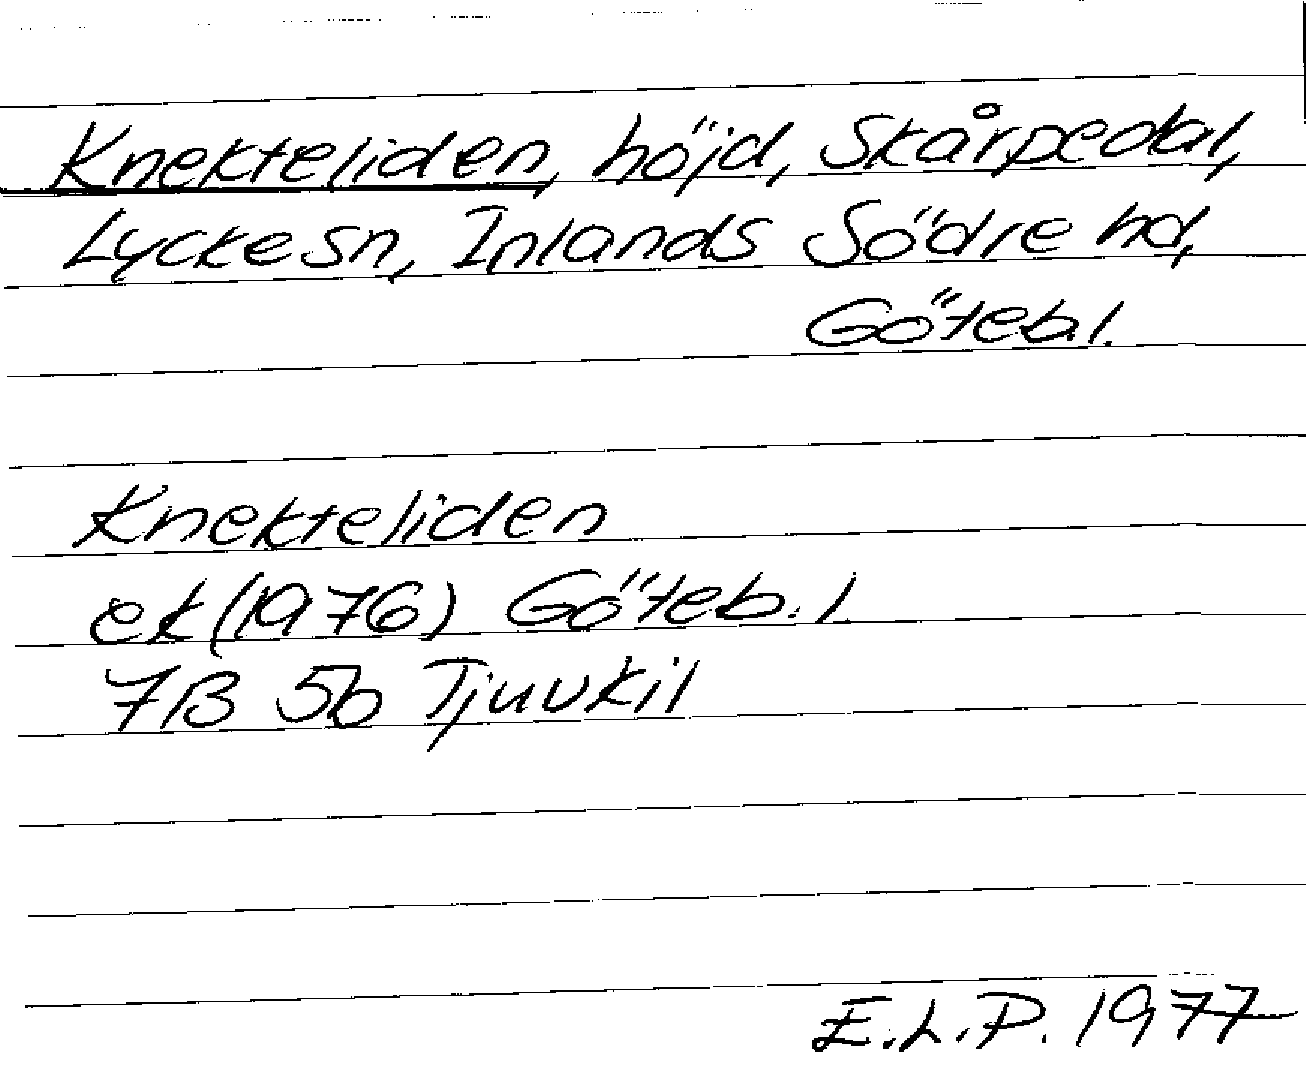 Knekteliden, höjd, Skårpedal,
Lycke sn, Inlands Södre hd,
Göteb.l.
Knekteliden
ek (1976) Göteb.l.
7B 5b Tjuvkil
E.L.P. 1977